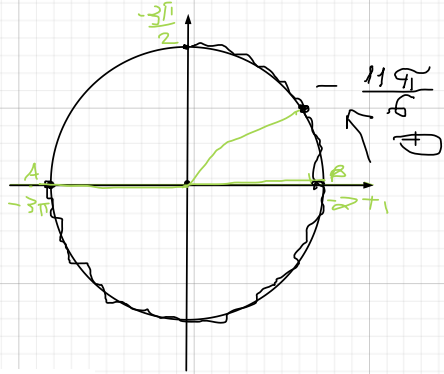 -3π
2
- 11π
6
A
B
-3π
-2π